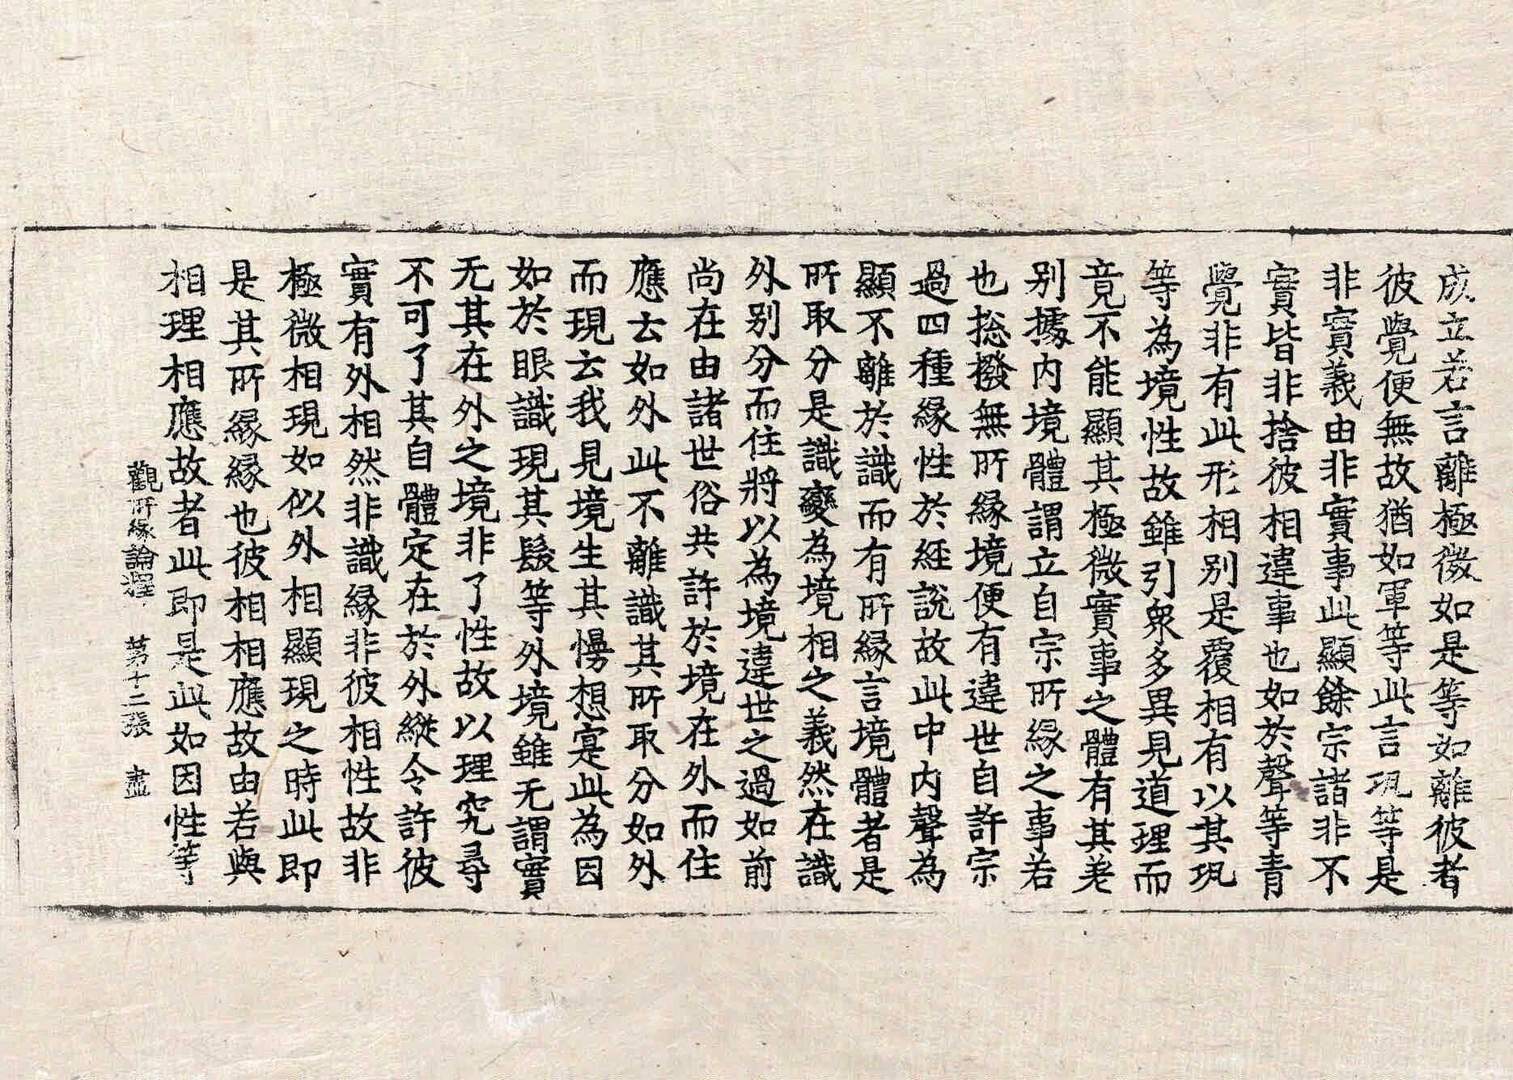 成立若言離極微如是等如離彼者
彼覺便無故猶如軍等此言瓨等是
非實義由非實事此顯餘宗諸非不
實皆非捨彼相違事也如於聲等青
覺非有此形相別是覆相有以其瓨
等為境性故雖引衆多異見道理而
竟不能顯其極微實事之體有其差
別據內境體謂立自宗所緣之事若
也捴撥無所緣境便有違世自許宗
過四種緣性於經說故此中內聲為
顯不離於識而有所緣言境體者是
所取分是識變為境相之義然在識
外別分而住將以為境違世之過如前
尚在由諸世俗共許於境在外而住
應去如外此不離識其所取分如外
而現去我見境生其慢想寔此為因
如於眼識現其髮等外境雖无謂實
无其在外之境非了性故以理究尋
不可了其自體定在於外縱令許彼
實有外相然非識緣非彼相性故非
極微相現如似外相顯現之時此即
是其所緣緣也彼相相應故由若與
相理相應故者此即是此如因性等
觀所緣論釋 第十二張 盡